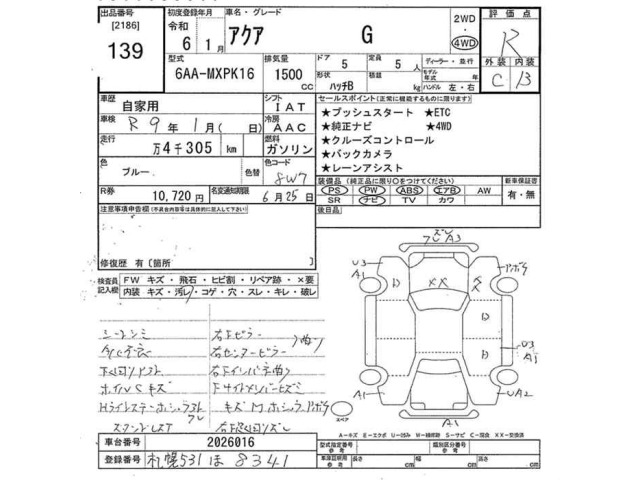 出品番号 初度登録年月 車名・グレード 2WD 評価点
[2186] 令和 アクア G 4WD R
139 6 1月
型式 排気量 ドア 5 定員 5人 ディーラー・並行 外装 内装
6AA-MXPK16 1500 cc 形状 ハッチB 積載 kg モデル年式 年 ハンドル 左・右 C B
車歴 自家用 シフト IAT セールスポイント(正常に機能するものに限ります)
車検 R 9年 1月( 日) 冷房 AAC ★プッシュスタート ★ETC
★純正ナビ ★4WD
走行 万4千305 km 燃料 ガソリン ★クルーズコントロール
★バックカメラ
色 ブルー 色替 色コード 8W7 ★レーンアシスト
装備品(純正品に限り○をつけてください) 新車保証書
R券 10,720円 名変通知期限 6月25日 PS PW ABS エアB AW 有・無
SR ナビ TV カワ
注意事項申告欄(不具合内容等は具体的に記入して下さい) 後日品
修復歴 有〔箇所 〕
検査員記入欄 FW キズ・飛石・ヒビ割・リペア跡・×要
内装 キズ・汚レ・コゲ・穴・スレ・キレ・破レ
シートシミ 右Fピラー
右センターピラー 曲り
ホイルCキズ
U3 A1 A3
D XX D
D
U3 A1
A1 UA2
A1
スペア
A-キズ E-エクボ U-凹み W-補修跡 S-サビ C-腐食 XX-交換済
車台番号 2026016 型式指定番号 参考 類別区分番号 参考
登録番号 札幌531 ほ 8341 車体図面用 参考 長さ cm 幅 cm 高さ cm